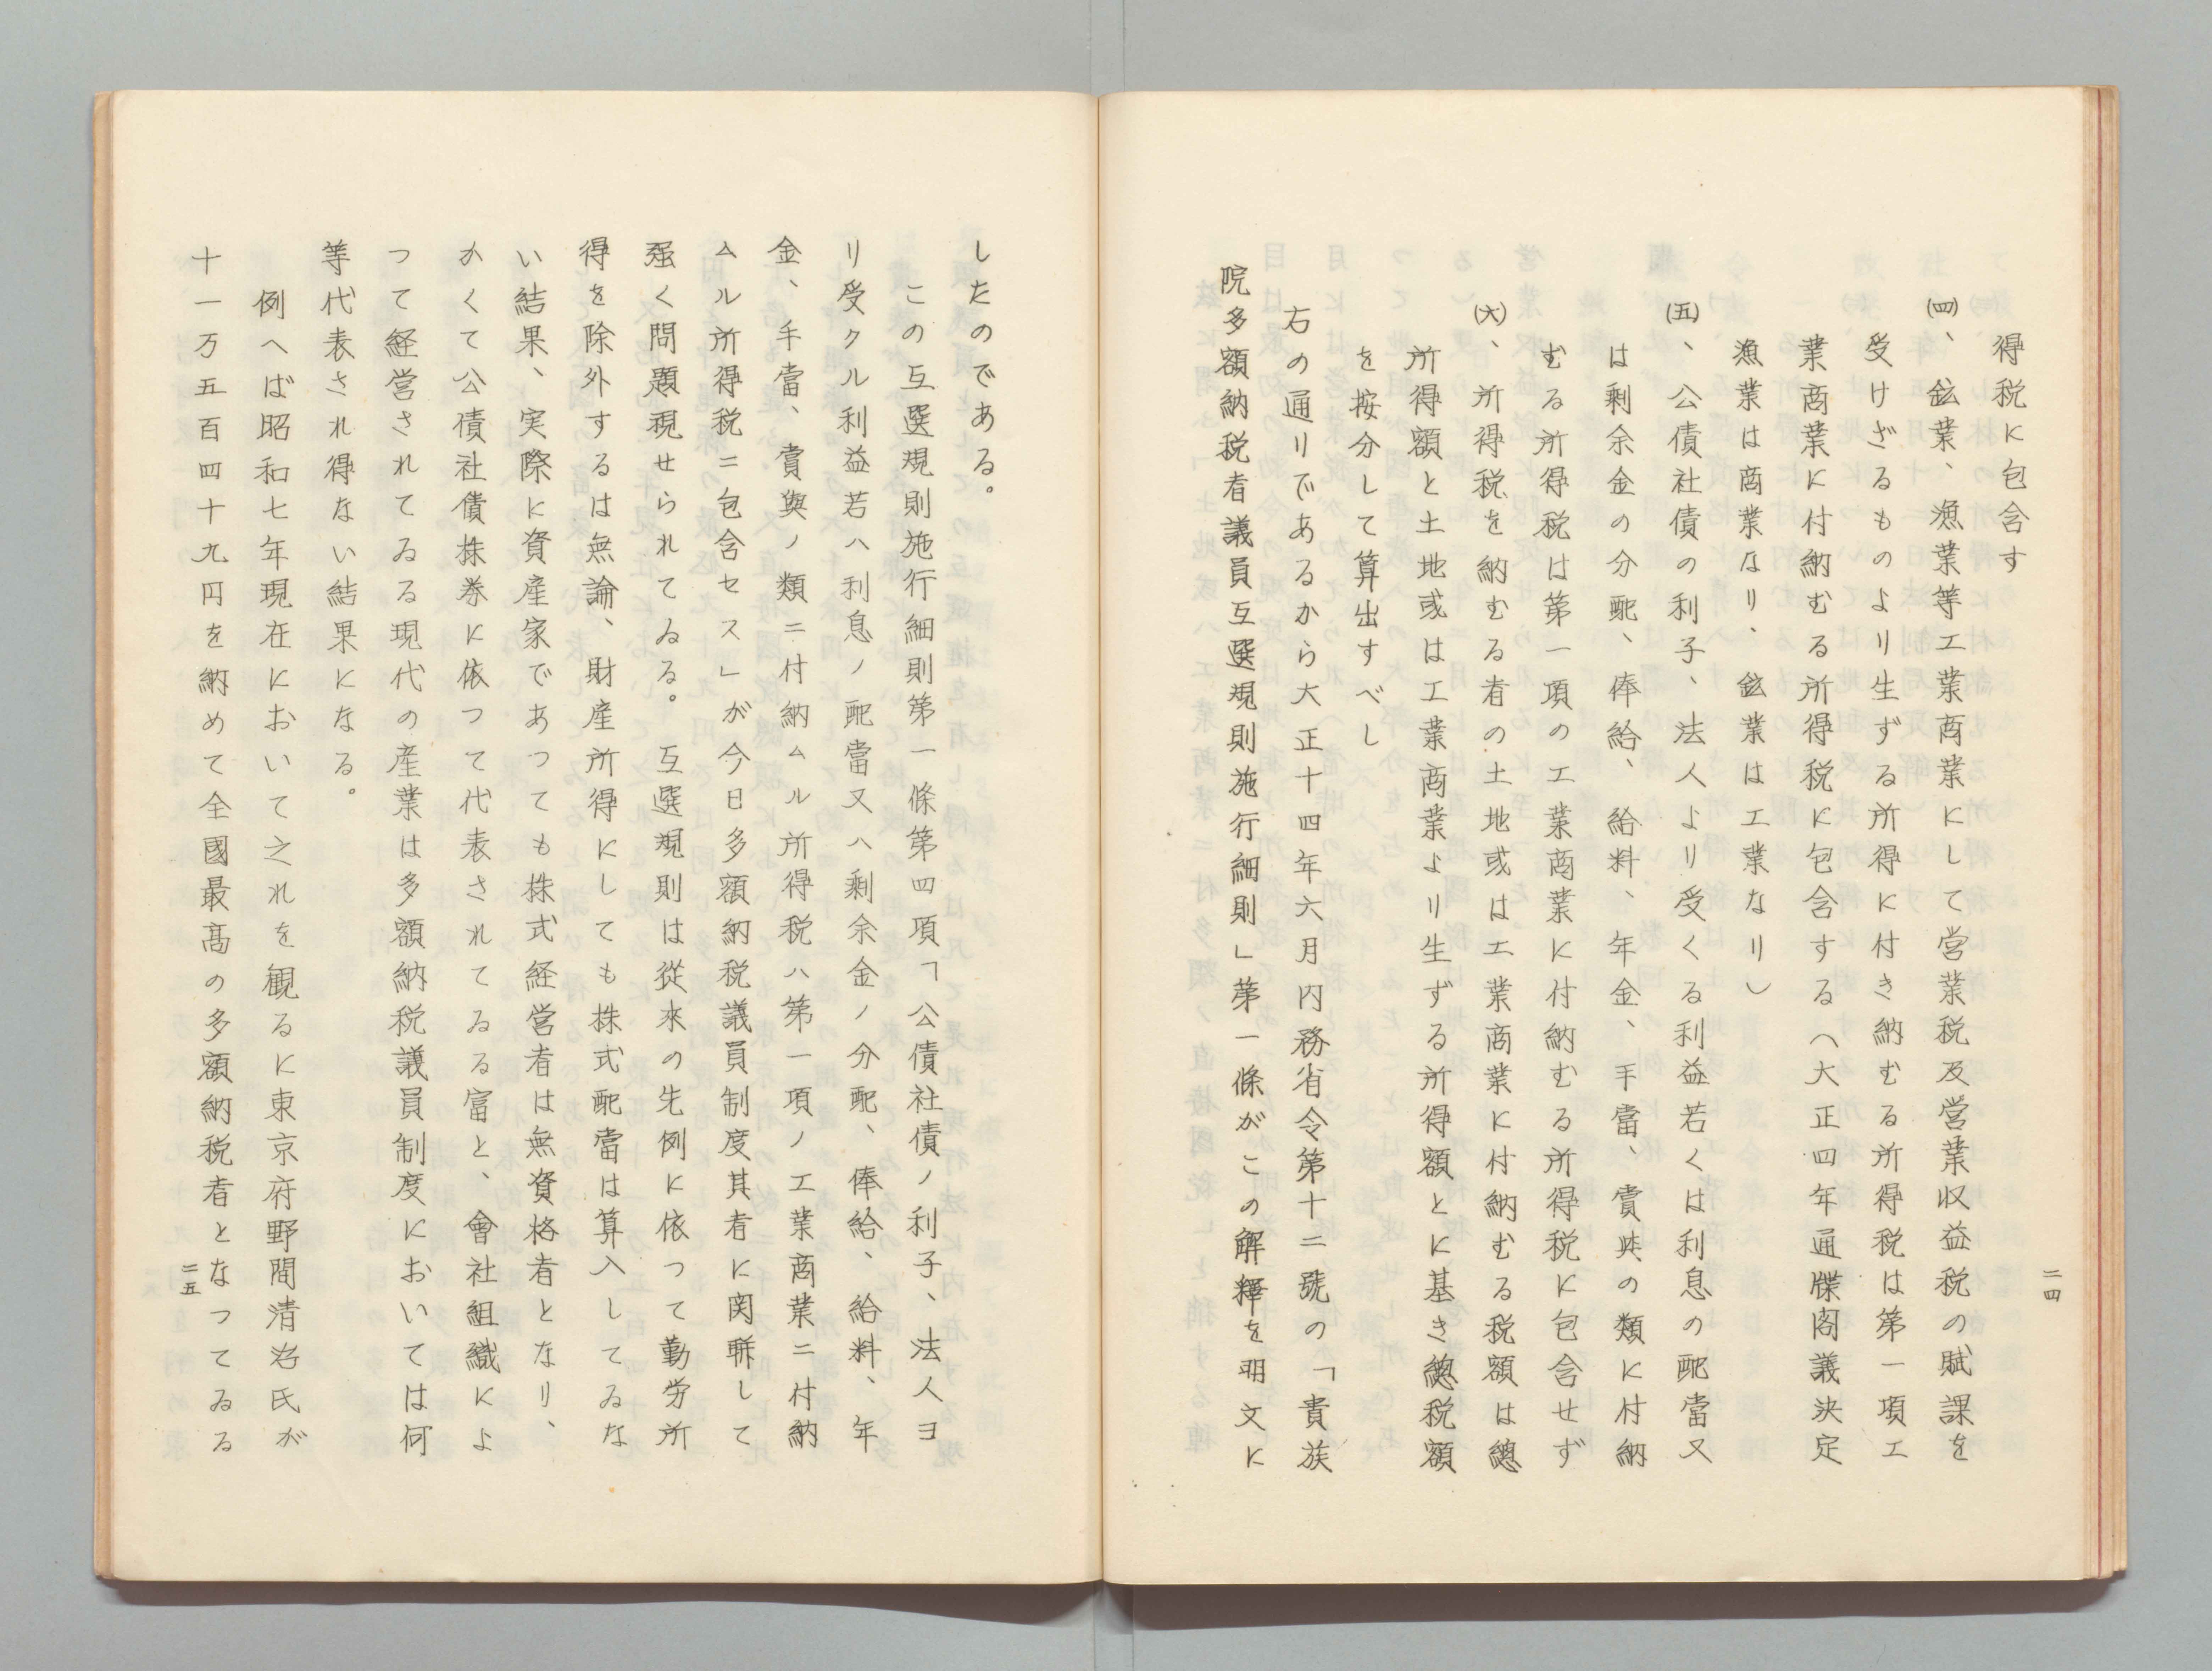 得税に包含す
㈣、鉱業、漁業等工業商業にして営業税及営業収益税の賦課を
受けざるものより生ずる所得に付き納むる所得税は第一項工
業商業に付納むる所得税に包含する（大正四年通牒閣議決定
漁業は商業なり、鉱業は工業なり）
㈤、公債社債の利子、法人より受くる利益若くは利息の配當又
は剰余金の分配、俸給、給料、年金、手當、賞與の類に付納
むる所得税は第一項の工業商業に付納むる所得税に包含せず
㈥、所得税を納むる者の土地或は工業商業に付納むる税額は總
所得額と土地或は工業商業より生ずる所得額とに基き總税額
を按分して算出すべし
右の通りであるから大正十四年六月内務省令第十二號の「貴族
院多額納税者議員互選規則施行細則」第一條がこの解釋を明文に
二四
したのである。
この互選規則施行細則第一條第四項「公債社債ノ利子、法人ヨ
リ受クル利益若ハ利息ノ配當又ハ剰余金ノ分配、俸給、給料、年
金、手當、賞與ノ類ニ付納ムル所得税ハ第一項ノ工業商業ニ付納
ムル所得税ニ包含セス」が今日多額納税議員制度其者に関聯して
强く問題視せられてゐる。互選規則は從來の先例に依つて勤労所
得を除外するは無論、財産所得にしても株式配當は算入してゐな
い結果、実際に資産家であつても株式経営者は無資格者となり、
かくて公債社債株券に依つて代表されてゐる富と、會社組織によ
つて経営されてゐる現代の産業は多額納税議員制度においては何
等代表され得ない結果になる。
例へば昭和七年現在において之れを観るに東京府野間清治氏が
十一万五百四十九円を納めて全國最高の多額納税者となつてゐる
二五